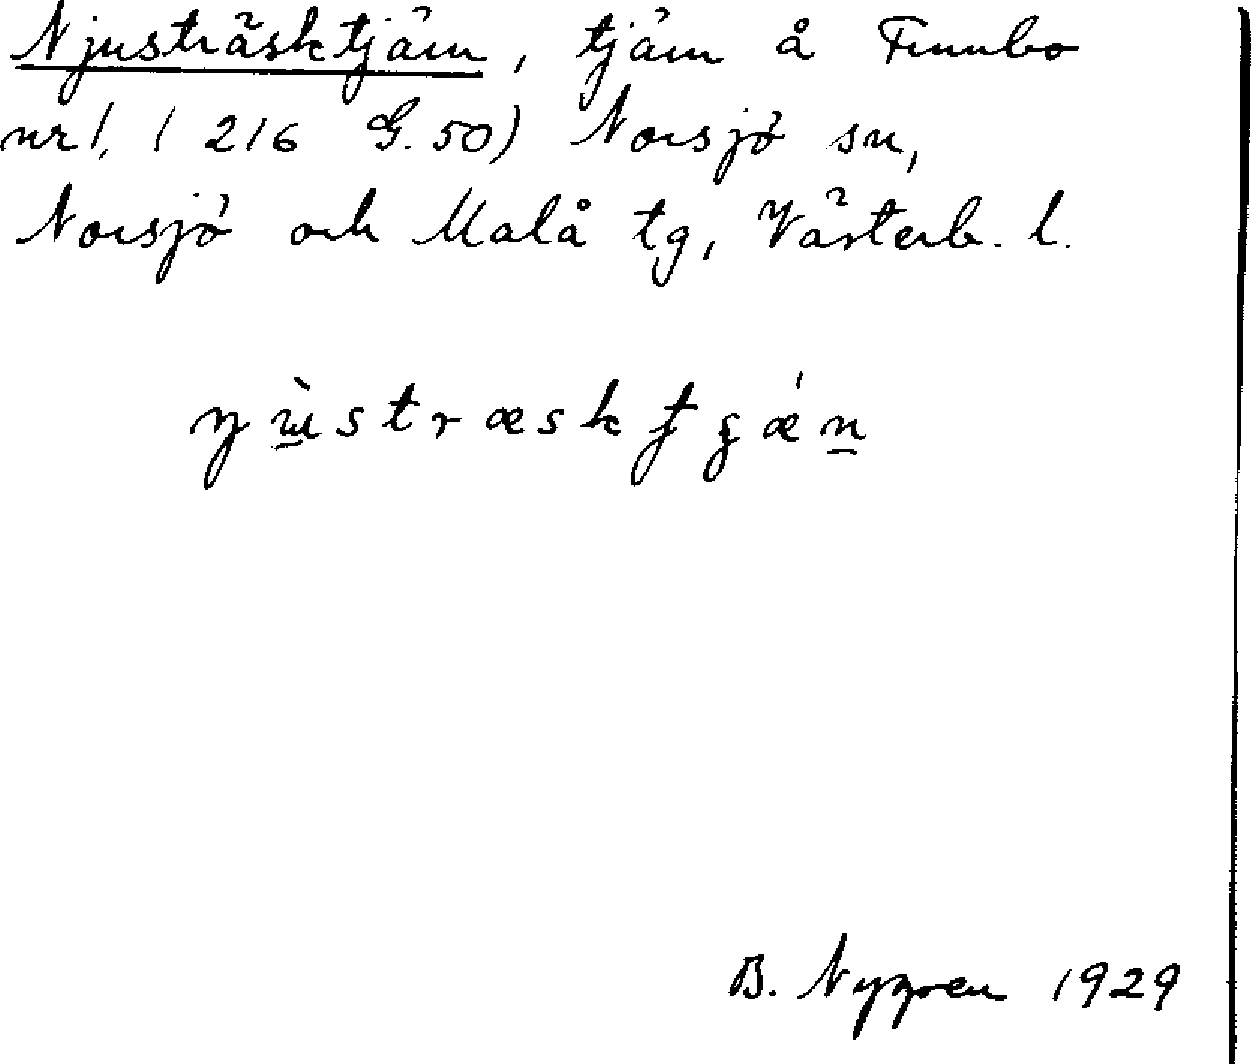 Njusträsktjärn, tjärn å Finnbo
nr 1. (216 G. 50) Norsjö sn,
Norsjö och Malå tg, Västerb. l.
B. Nygren 1929